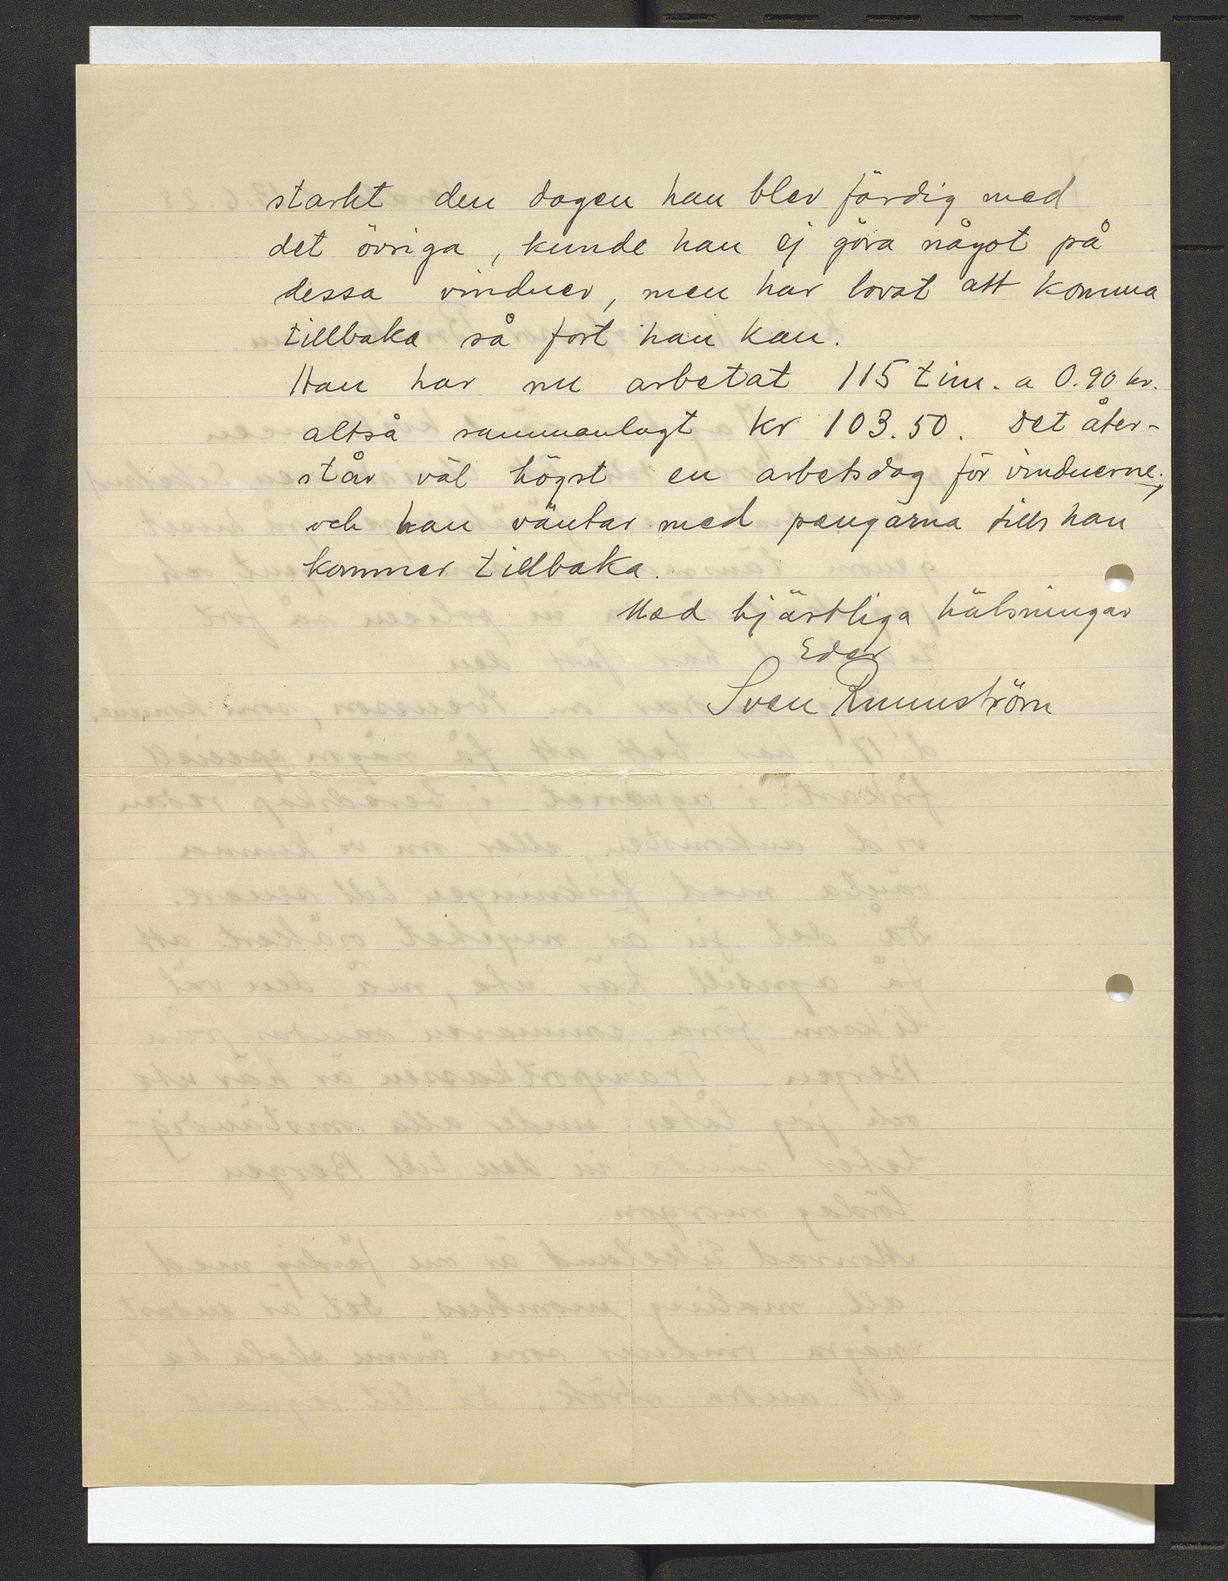 starkt den dagen han blev färdig med
det övriga, kunde han ej göra något på
dessa vinduer, men har lovat att komma
tillbaka så fort han kan.
Han har nu arbetat 115 tim. a 0.90 kr.
altså sammanlagt kr 103.50. Det åter-
står väl högst en arbetsdag för vinduerne,
och han väntar med pengarna tills han
kommer tillbaka.
Med hjärtliga hälsningar
Eder
Sven Runnström